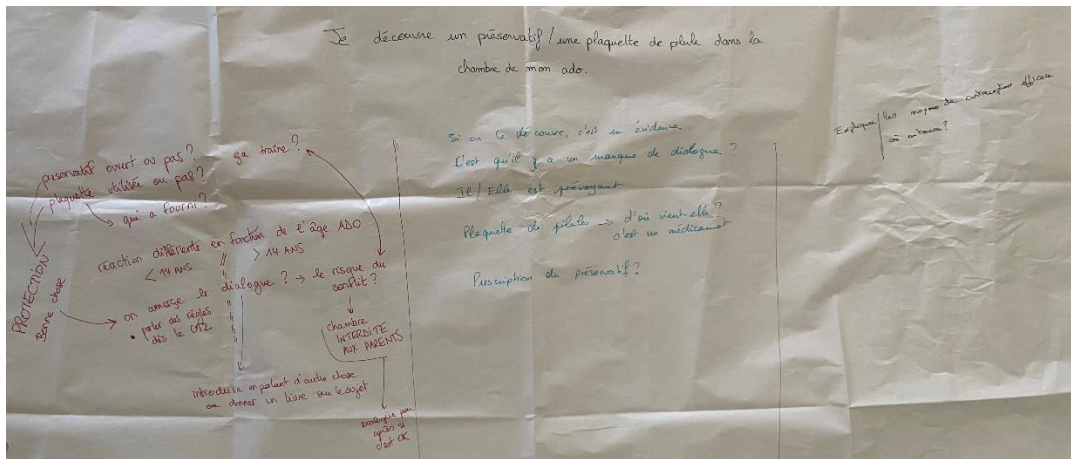 Je découvre un préservatif / une plaquette de pilule dans la
chambre de mon ado.
préservatif ouvert ou pas?
plaquette utilisée ou pas?
qui a fourni?
ça traîne?
PROTECTION
Bonne chose
réaction différente en fonction de l'âge ADO
< 14 ANS
> 14 ANS
on amorce le dialogue? → le risque du
conflit?
• parler des règles
dès le CM2
chambre
INTERDITE
AUX PARENTS
introduire en parlant d'autre chose
ou donner un livre sur le sujet
Dialogue
après si
c'est OK
Si on le découvre, c'est une évidence
C'est qu'il y a un manque de dialogue?
Il / Elle est prévoyant
Plaquette de pilules → d'où vient-elle?
c'est un médicament
Prescription du préservatif?
Expliquer / les moyens de contraception efficace